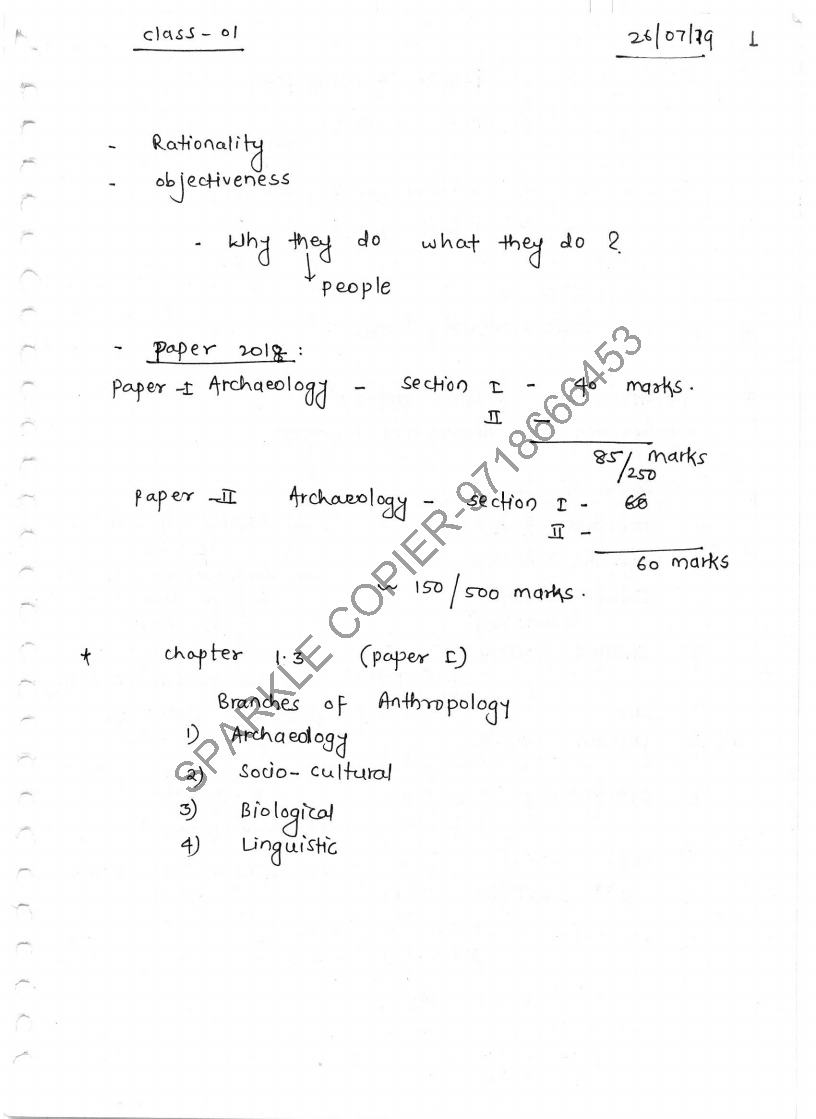 Class - 01 26/07/19 1
- Rationality
- objectiveness
- Why they do what they do ?
↓ people
- Paper 2018 :
Paper - I Archaeology - section I - 40 marks.
II -
85/250 marks
Paper - II Archaeology - section I - 60
II -
60 marks
~ 150/500 marks.
* Chapter 1.3 (paper I)
Branches of Anthropology
1) Archaeology
2) Socio - cultural
3) Biological
4) Linguistic
SPARKLE COPIER-9718666453